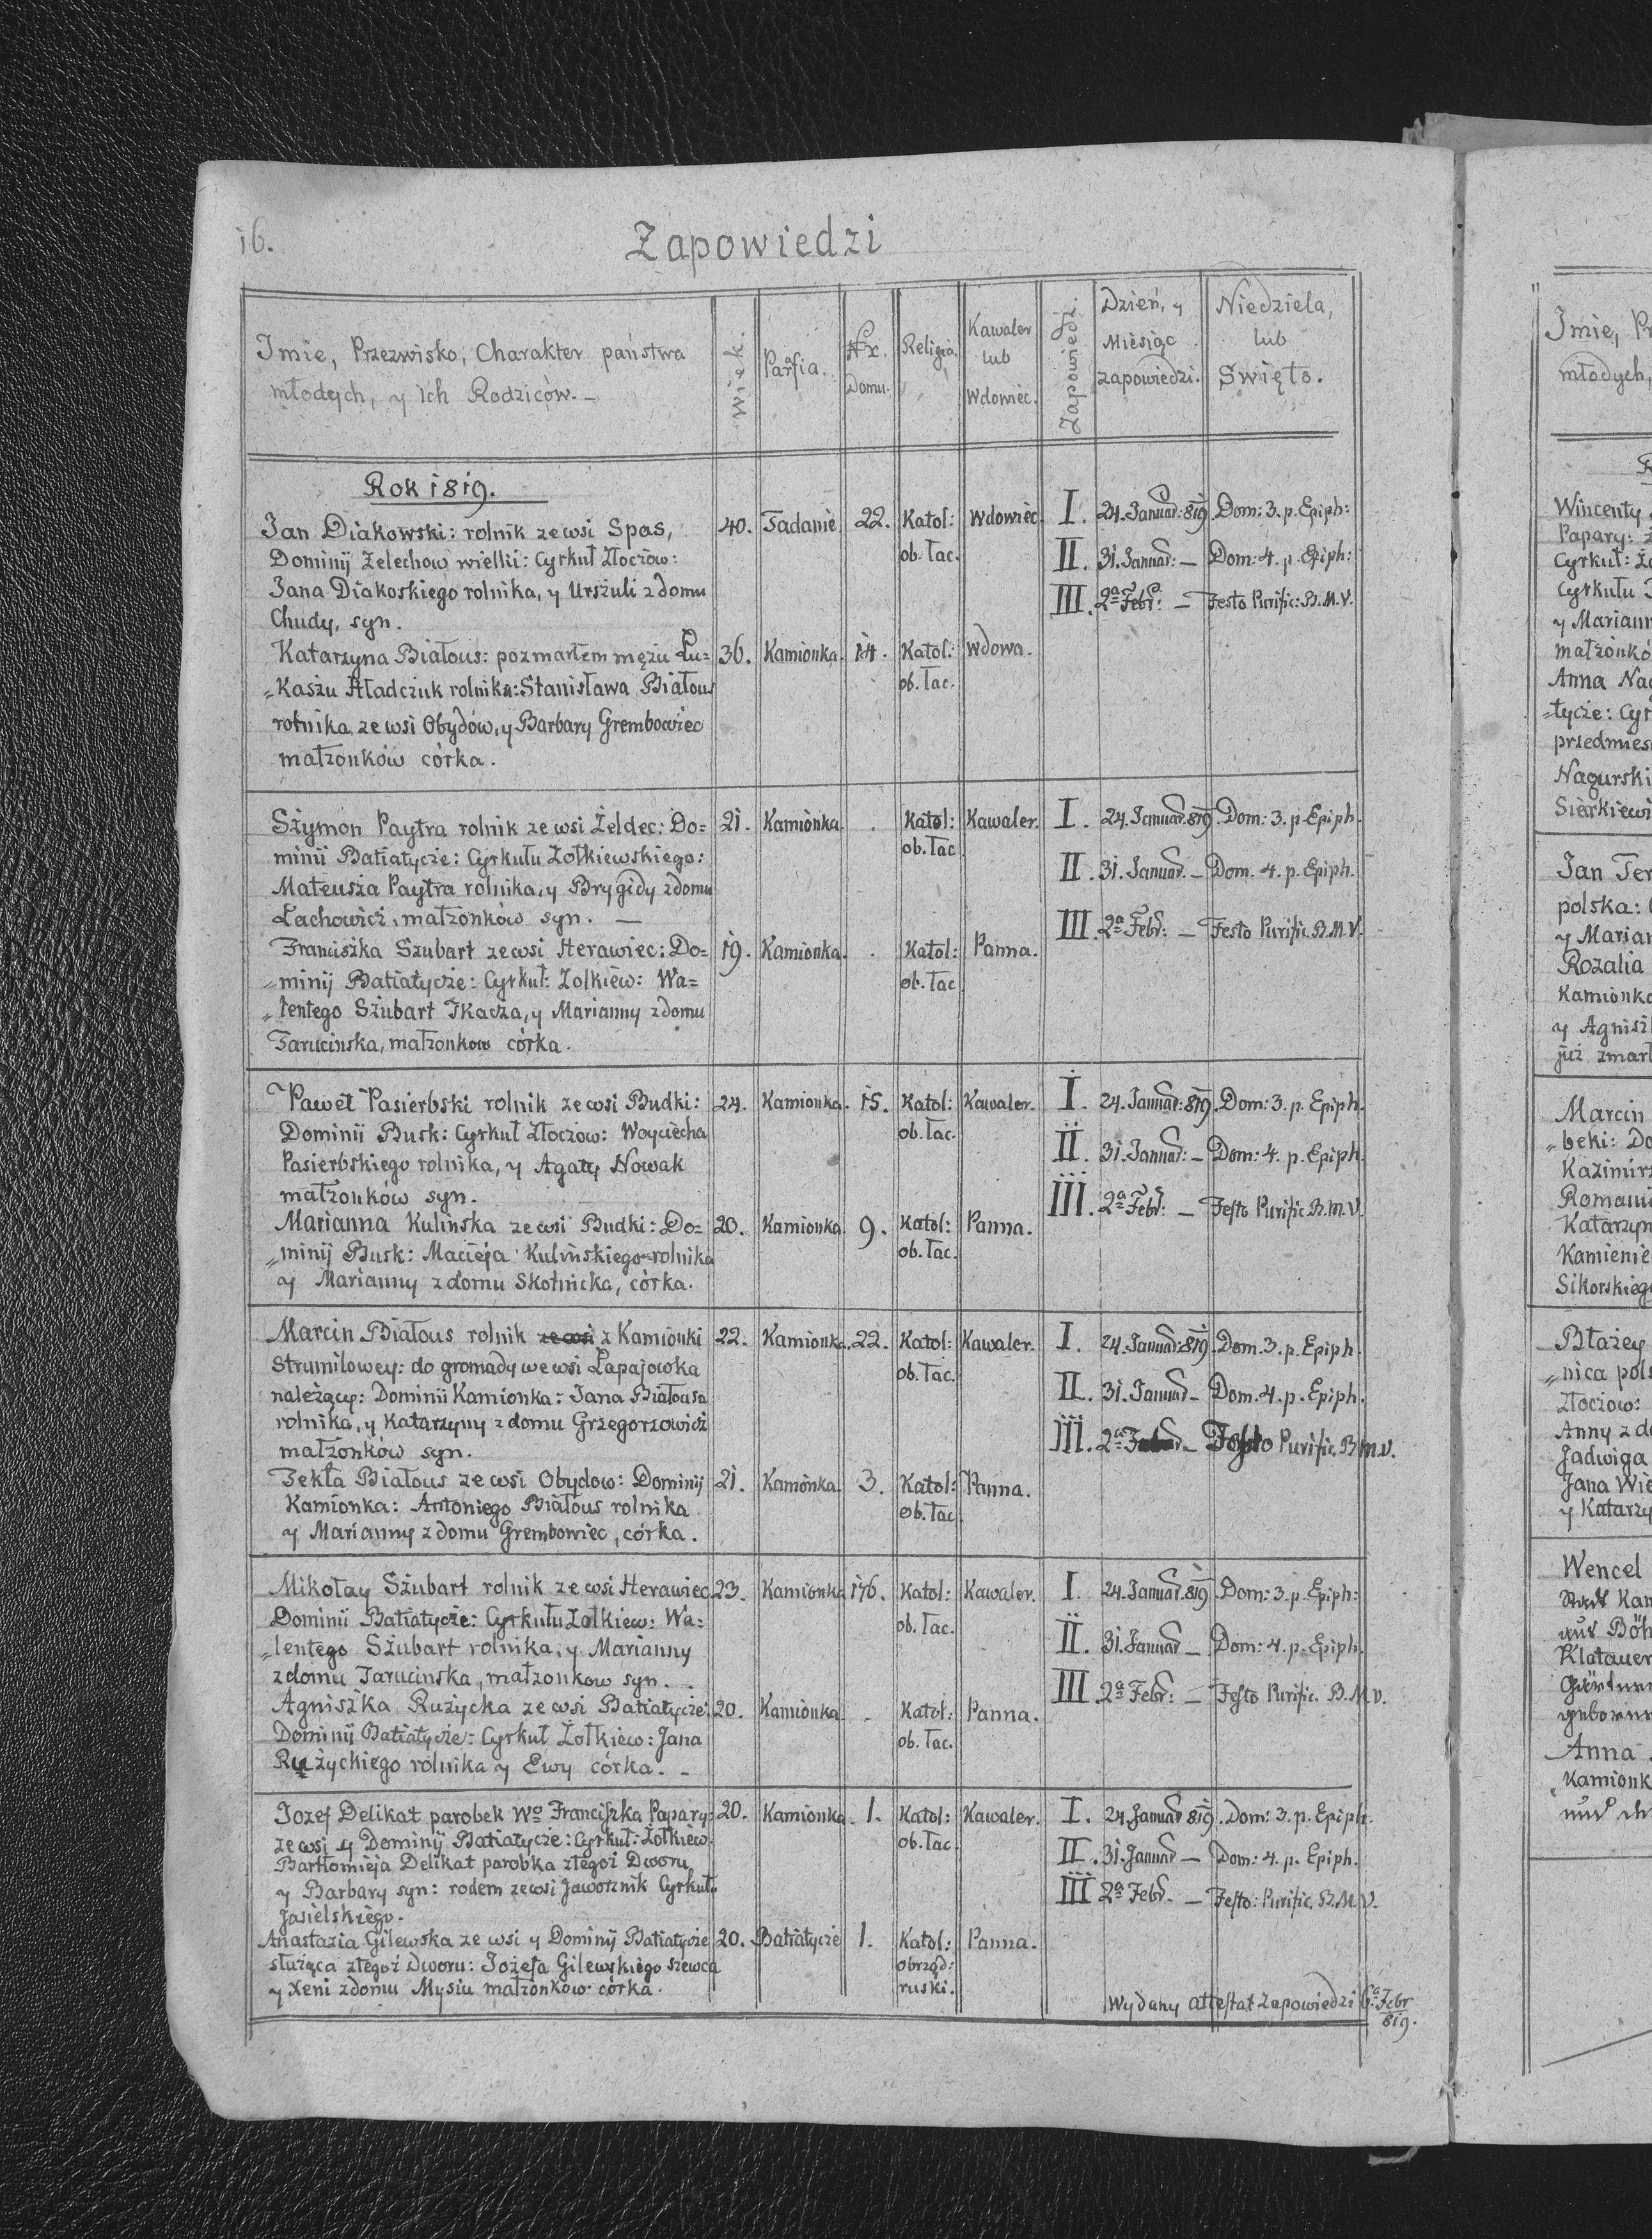 16.
Zapowiedzi
Imie, Przezwisko, Charakter państwa
młodych, y Ich Rodziców. –
Wiek.
Parafia.
Nr.
Domu.
Religia.
Kawaler
lub
Wdowiec.
Zapowiedzi.
Dzień, y
Miesiąc
zapowiedzi.
Niedziela,
lub
Swięto.
Rok 1819.
Jan Diakowski: rolnik ze wsi Spas, 40. Tadanie 22. Katol: Wdowiec. I. 24. Januar: 819. Dom: 3. p. Epiph:
Dominij Zelechow wielki: Cyrkuł Złoczow: ob. łac. II. 31. Januar: – Dom: 4. p. Epiph:
Jana Diakoskiego rolnika, y Urszuli z domu III. 2a Febr: – Festo Purific: B. M. V.
Chudy, syn.
Katarzyna Białous: pozmarłem mężu Łu= 36. Kamionka. 14. Katol: Wdowa.
„kaszu Hładczuk rolnika: Stanisława Białous ob. łac.
rolnika ze wsi Obydów, y Barbary Grembowiec
małzonków córka.
Szymon Paytra rolnik ze wsi Żeldec: Do= 21. Kamionka. . Katol: Kawaler. I. 24. Januar. 819. Dom: 3. p. Epiph.
minii Batiatycze: Cyrkułu Zołkiewskiego: ob. łac II. 31. Januar. – Dom. 4. p. Epiph.
Mateusza Paytra rolnika, y Brygidy z domu
Lachowicz, małzonków syn. – III. 2a Febr: – Festo Purific. B. M. V.
Franciszka Szubart ze wsi Herawiec: Do= 19. Kamionka. . Katol: Panna.
„minij Batiatycze: Cyrkuł: Zolkiew: Wa= ob. łac
„lentego Szubart Tkacza, y Marianny z domu
Tarucinska, małzonkow córka.
Paweł Pasierbski rolnik ze wsi Budki: 24. Kamionka. 15. Katol: Kawaler. I. 24. Januar: 819. Dom: 3. p. Epiph.
Dominii Busk: Cyrkuł Złoczow: Woyciecha ob. łac. II. 31. Januar: – Dom: 4. p. Epiph.
Pasierbskiego rolnika, y Agaty Nowak
małzonków syn. III. 2a Febr: – Festo Purific. B. M. V.
Marianna Kulinska ze wsi Budki: Do= 20. Kamionka 9. Katol: Panna.
„minij Busk: Macieja Kulińskiego rolnika ob. łac.
y Marianny z domu Skotnicka, córka.
Marcin Białous rolnik ze wsi z Kamionki 22. Kamionka. 22. Katol: Kawaler. I. 24. Januar: 819. Dom. 3. p. Epiph.
Strumilowey: do gromady we wsi Łapajowka ob. łac. II. 31. Januar – Dom. 4. p. Epiph.
należący: Dominii Kamionka: Jana Białousa
rolnika, y Katarzyny z domu Grzegorzowicz III. 2a – Festo Purific. B. M. V.
małzonków syn.
Tekła Białous ze wsi Obydow: Dominij 21. Kamionka. 3. Katol: Panna.
Kamionka: Antoniego Białous rolnika ob. łac
y Marianny z domu Grembowiec, córka.
Mikołay Szubart rolnik ze wsi Herawiec 23. Kamionka 176. Katol: Kawaler. I. 24. Januar. 819. Dom: 3. p. Epiph:
Dominii Batiatycze: Cyrkułu Zołkiew: Wa= ob. łac. II. 31. Januar – Dom: 4. p. Epiph.
„lentego Szubart rolnika, y Marianny
z domu Tarucinska, małzonkow syn. – III. 2a Febr: – Festo Purific. B. M. V.
Agniszka Ruzycka ze wsi Batiatycze: 20. Kamionka . Katol: Panna.
Dominij Batiatycze: Cyrkuł Żołkiew: Jana ob. łac.
Ruzyckiego rolnika y Ewy córka. –
Jozef Delikat parobek Wo Franciszka Papary: 20. Kamionka. 1. Katol: Kawaler. I. 24. Januar 819. Dom: 3. p. Epiph.
ze wsi y Dominij Batiatycze: Cyrkuł: Żołkiew. ob. łac. II. 31. Januar – Dom: 4. p. Epiph.
Bartłomieja Delikat parobka ztegoż Dworu
y Barbary syn: rodem ze wsi Jawornik Cyrkułu III 2a Febr. – Festo: Purific. B. M. V.
Jasielskiego.
Anastazia Gilewska ze wsi y Dominij Batiatycze 20. Batiatycze 1. Katol: Panna.
służąca ztegoż Dworu: Jozefa Gilewskiego szewca obrząd:
y Xeni z domu Mysiu małzonkow córka. ruski.
Wydany attestat Zapowiedzi 6a Febr
819.
Imie, Pr
młodych,
R
Wincenty
Papary: z
Cyrkuł: Zo
Cyrkułu
y Mariann
małzonko
Anna Nag
„tycze: Cyr
przedmies
Nagurski
Sierkiewi
Jan Ter
polska:
y Marian
Rozalia
Kamionka
y Agnisz
już zmarł
Marcin
„beki: Do
Kazimirz
Romani
Katarzyn
Kamienie
Sikorskieg
Błazey
„nica pols
złoczow:
Anny z d
Jadwiga
Jana Wie
y Katarzy
Wencel
Stadt Kam
aus Böh
Klatauer
Gärtner
geboren
Anna
Kamionk
und